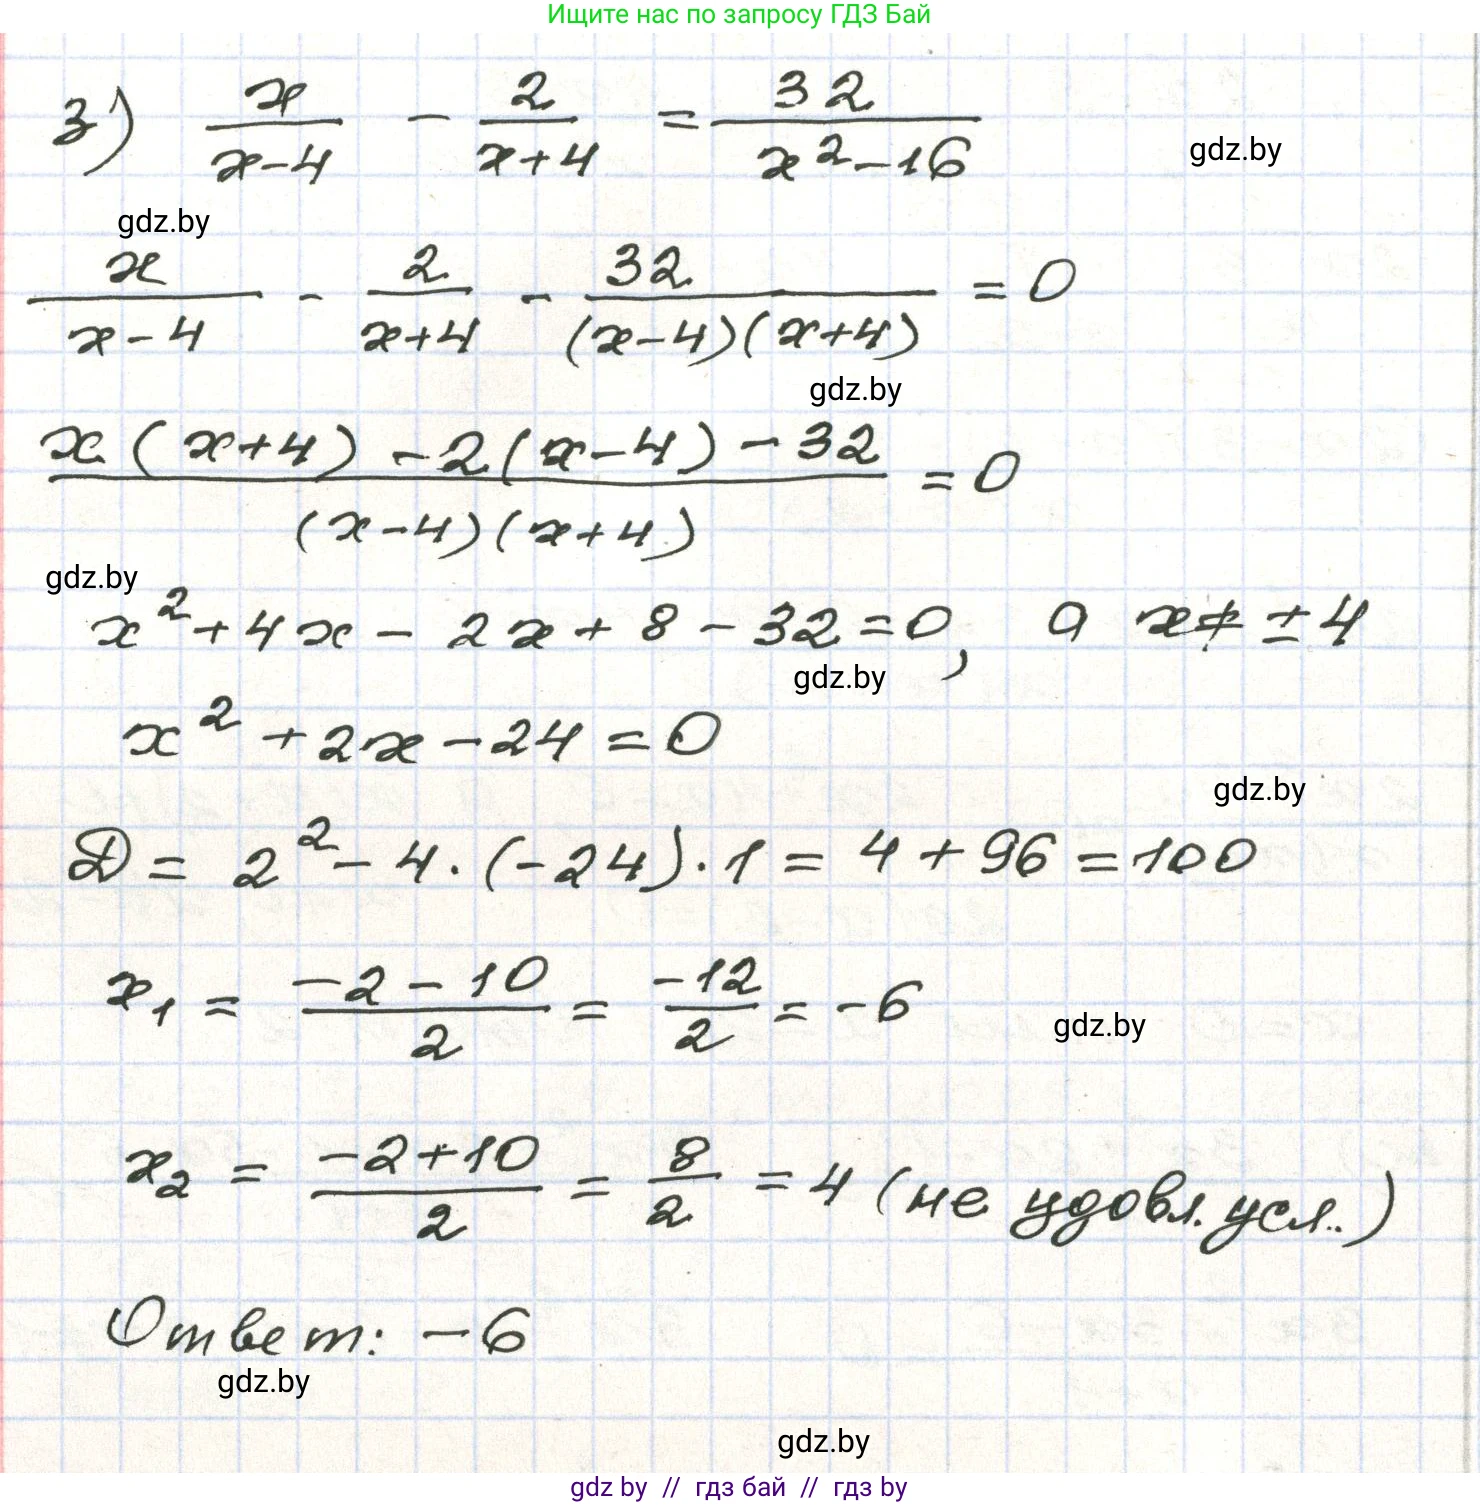 Ищите нас по запросу ГДЗ Бай
з) x/(x-4) - 2/(x+4) = 32/(x²-16)
gdz.by
gdz.by
x/(x-4) - 2/(x+4) - 32/((x-4)(x+4)) = 0
gdz.by
(x(x+4) - 2(x-4) - 32)/((x-4)(x+4)) = 0
gdz.by
x² + 4x - 2x + 8 - 32 = 0, а x ≠ ± 4
gdz.by
x² + 2x - 24 = 0
gdz.by
D = 2² - 4 · (-24) · 1 = 4 + 96 = 100
x₁ = (-2 - 10)/2 = -12/2 = -6
gdz.by
x₂ = (-2 + 10)/2 = 8/2 = 4 (не удовл. усл.)
Ответ: -6
gdz.by
gdz.by
gdz by // гдз бай // гдз by